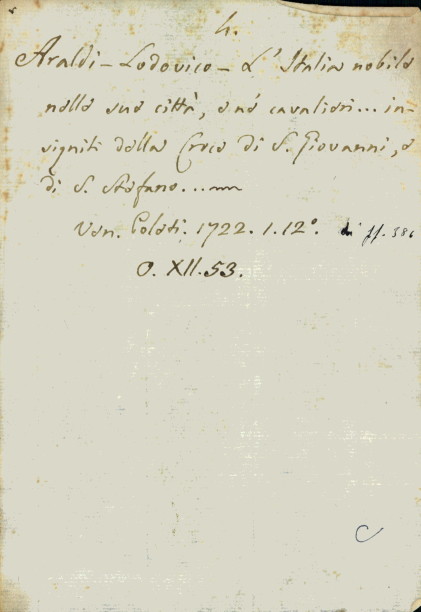 4.
Araldi - Lodovico - L'Italia nobile
nelle sue città, e ne' cavalieri... in-
signiti della Croce di S. Giovanni, e
di S. Stefano...
Ven. Coleti. 1722. 1. 12°. di ff. 386
O. XII. 53.
C